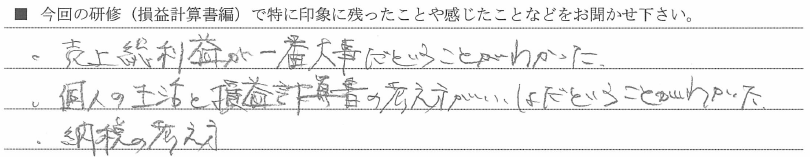 ■ 今回の研修（損益計算書編）で特に印象に残ったことや感じたことなどをお聞かせ下さい。
・売上総利益が一番大事だということがわかった。
・個人の生活と損益計算書の考え方がいっしょだということがわかった。
・納税の考え方